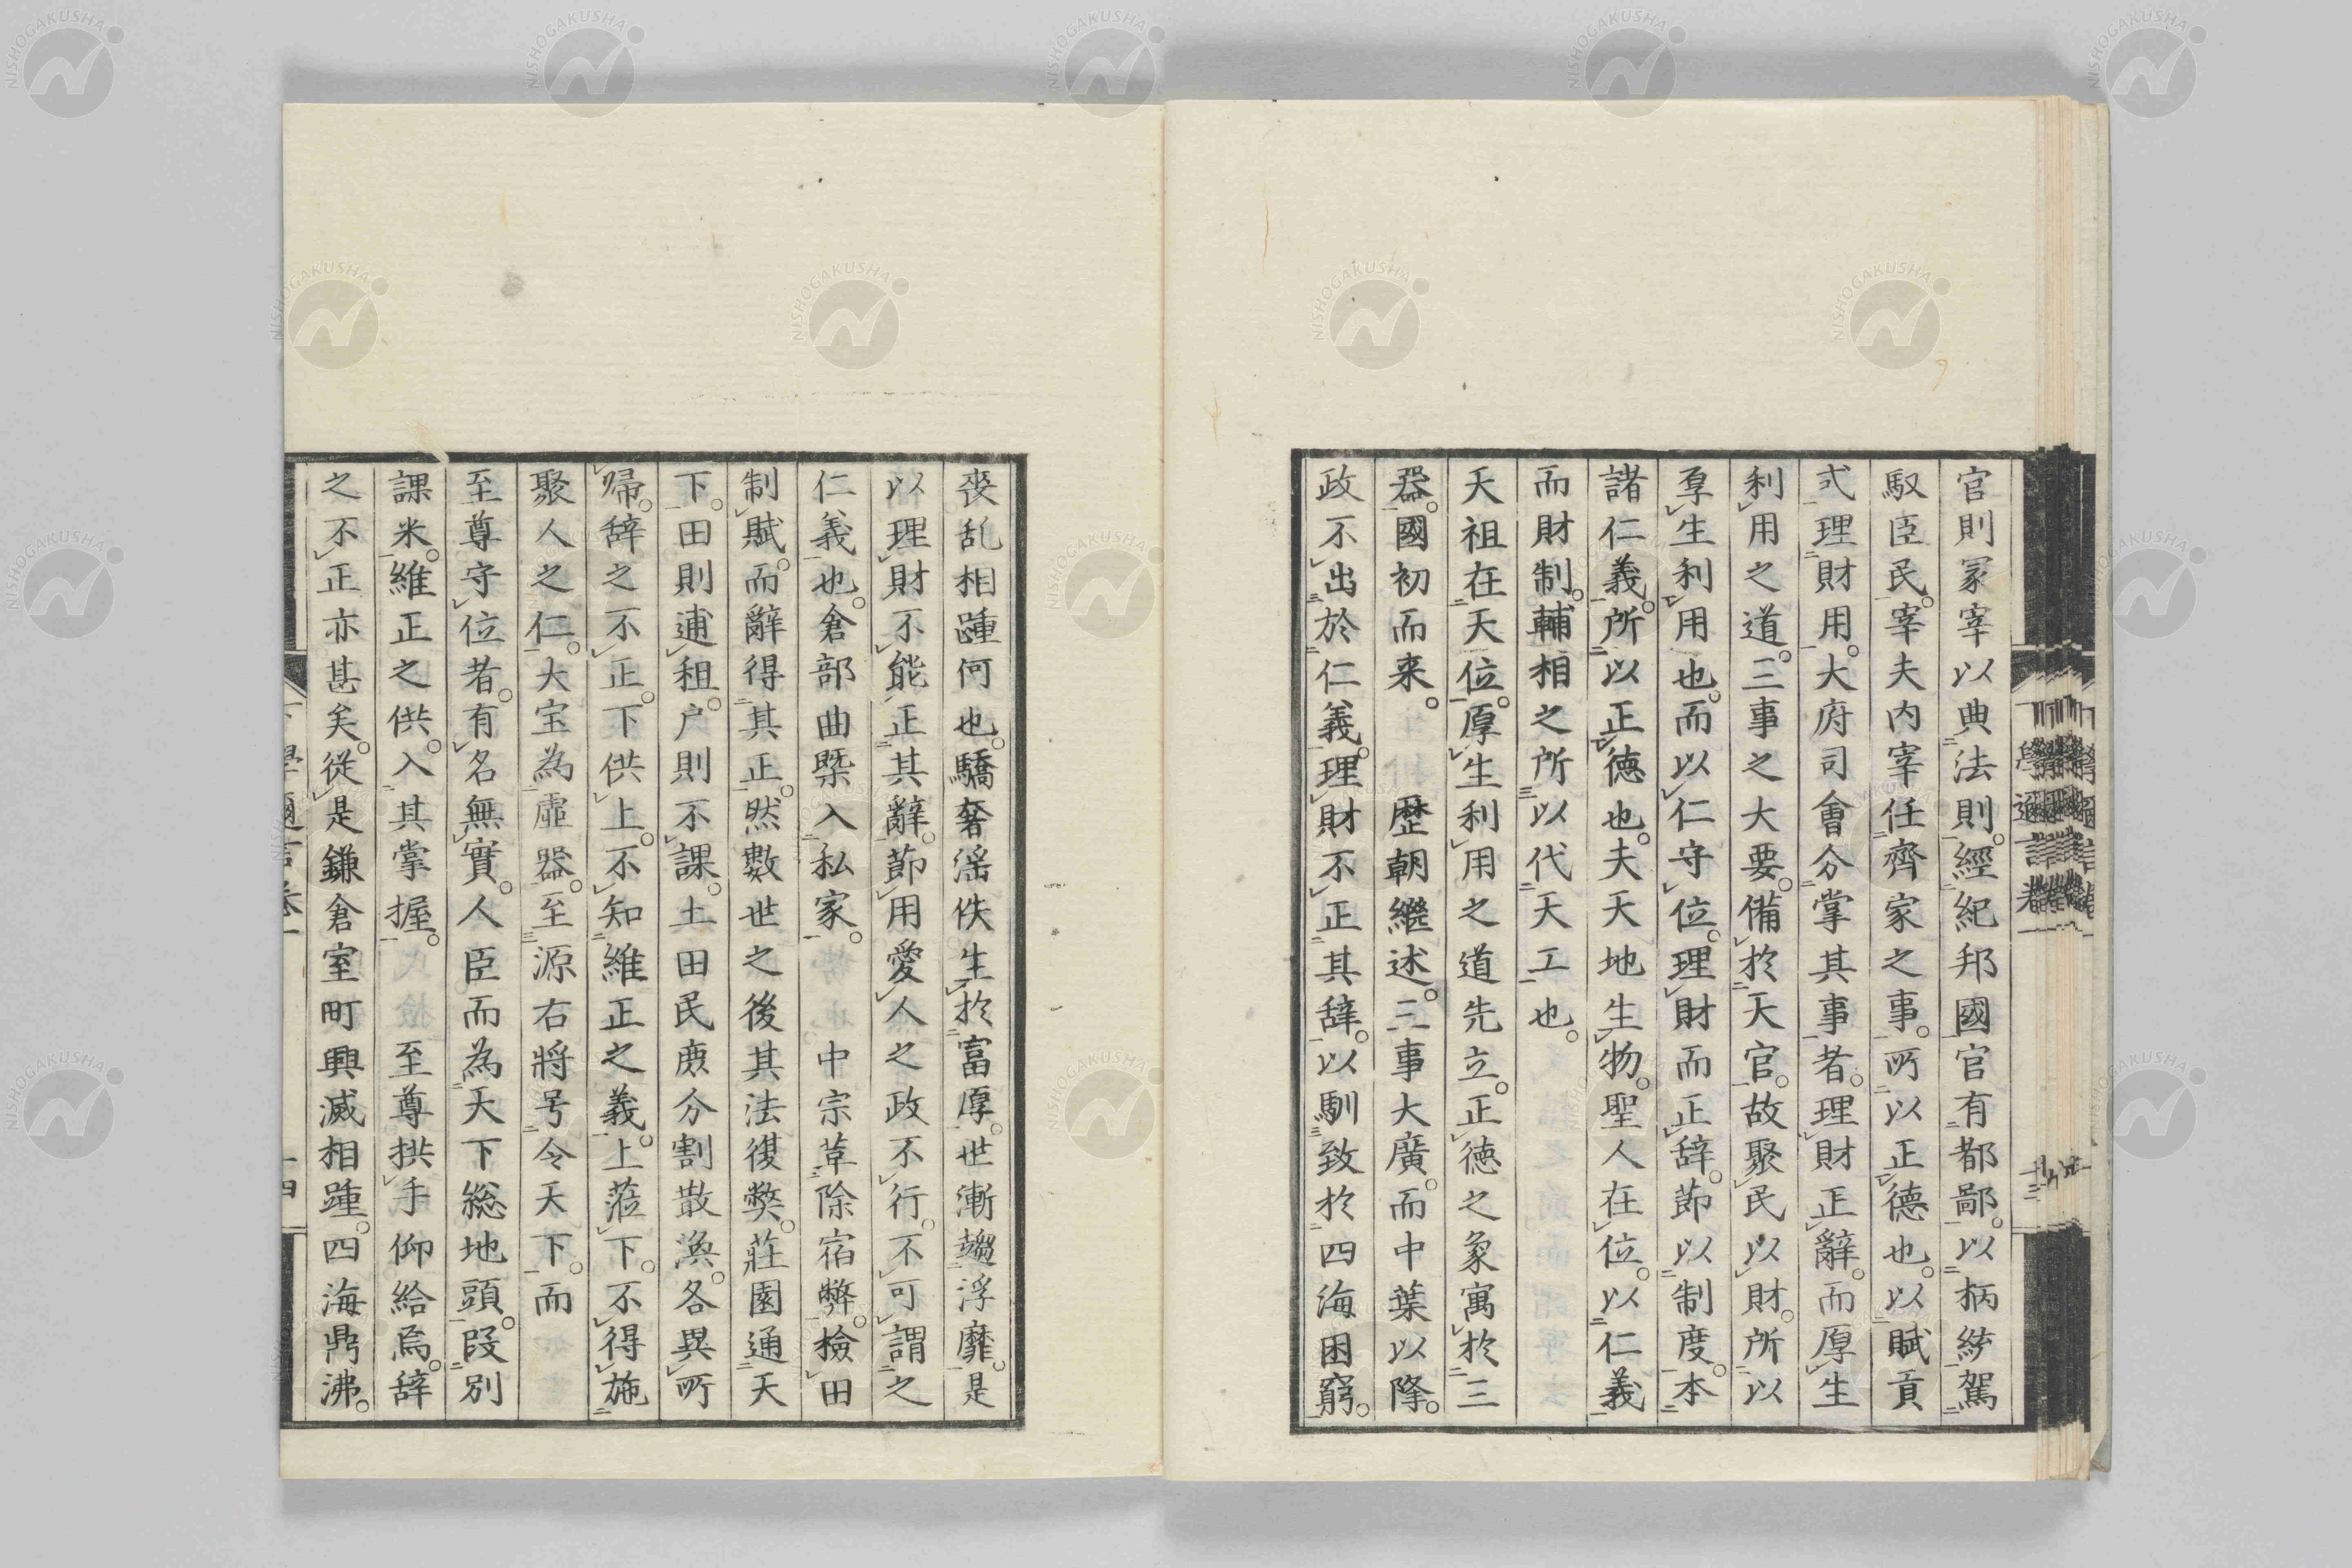 官則冢宰以典法則。經紀邦國官有都鄙。以柄綍駕
馭臣民。宰夫内宰任齊家之事。所以正德也。以賦貢
式理財用。大府司會分掌其事者。理財正辭。而厚生
利用之道。三事之大要。備於天官。故聚民以財。所以
厚生利用也。而以仁守位。理財而正辞。節以制度。本
諸仁義。所以正德也。夫天地生物。聖人在位。以仁義
而財制。輔相之所以代天工也。
天祖在天位。厚生利用之道先立。正德之象寓於三
器。國初而来。 歴朝繼述。三事大廣。而中葉以降。
政不出於仁義。理財不正其辞。以馴致於四海困窮。
喪乱相踵何也。驕奢滛佚生於富厚。世漸趨浮靡。是
以理財不能正其辭。節用愛人之政不行。不可謂之
仁義也。倉部曲槩入私家。 中宗草除宿弊。檢田
制賦。而辭得其正。然數世之後其法復弊。莊園通天
下。田則逋租。户則不課。土田民庶分割散渙。各異所
帰。辞之不正。下供上。不知維正之義。上莅下。不得施
聚人之仁。大宝為虚器。至源右將号令天下。而
至尊守位者。有名無實。人臣而為天下総地頭。段別
課米。維正之供。入其掌握。 至尊拱手仰給焉。辞
之不正亦甚矣。從是鎌倉室町興滅相踵。四海鼎沸。
下學邇言卷一
十四